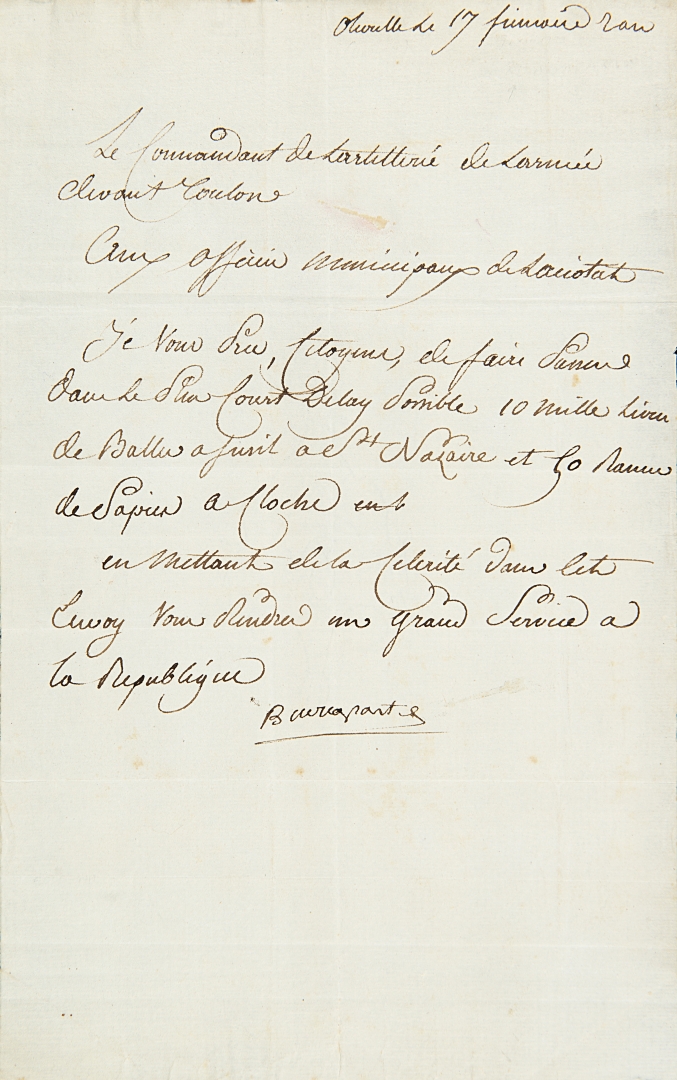 Olioulle Le 17 frimaire 2 an
Le Commandant de Lartillerie de Larmée
devant Toulon
Aux officier municipaux de Laciotat
Je Vous Prie, Citoyens, de faire Passer
dans Le Plus Court Delay Possible 10 mille Livres
de Balles a fusil a St Nazaire et 50 Rames
de Papier a Cloche
en Mettant de la Celerité dans Cet
Envoy Vous Rendrez un grand Service a
la Republique
Buonaparte